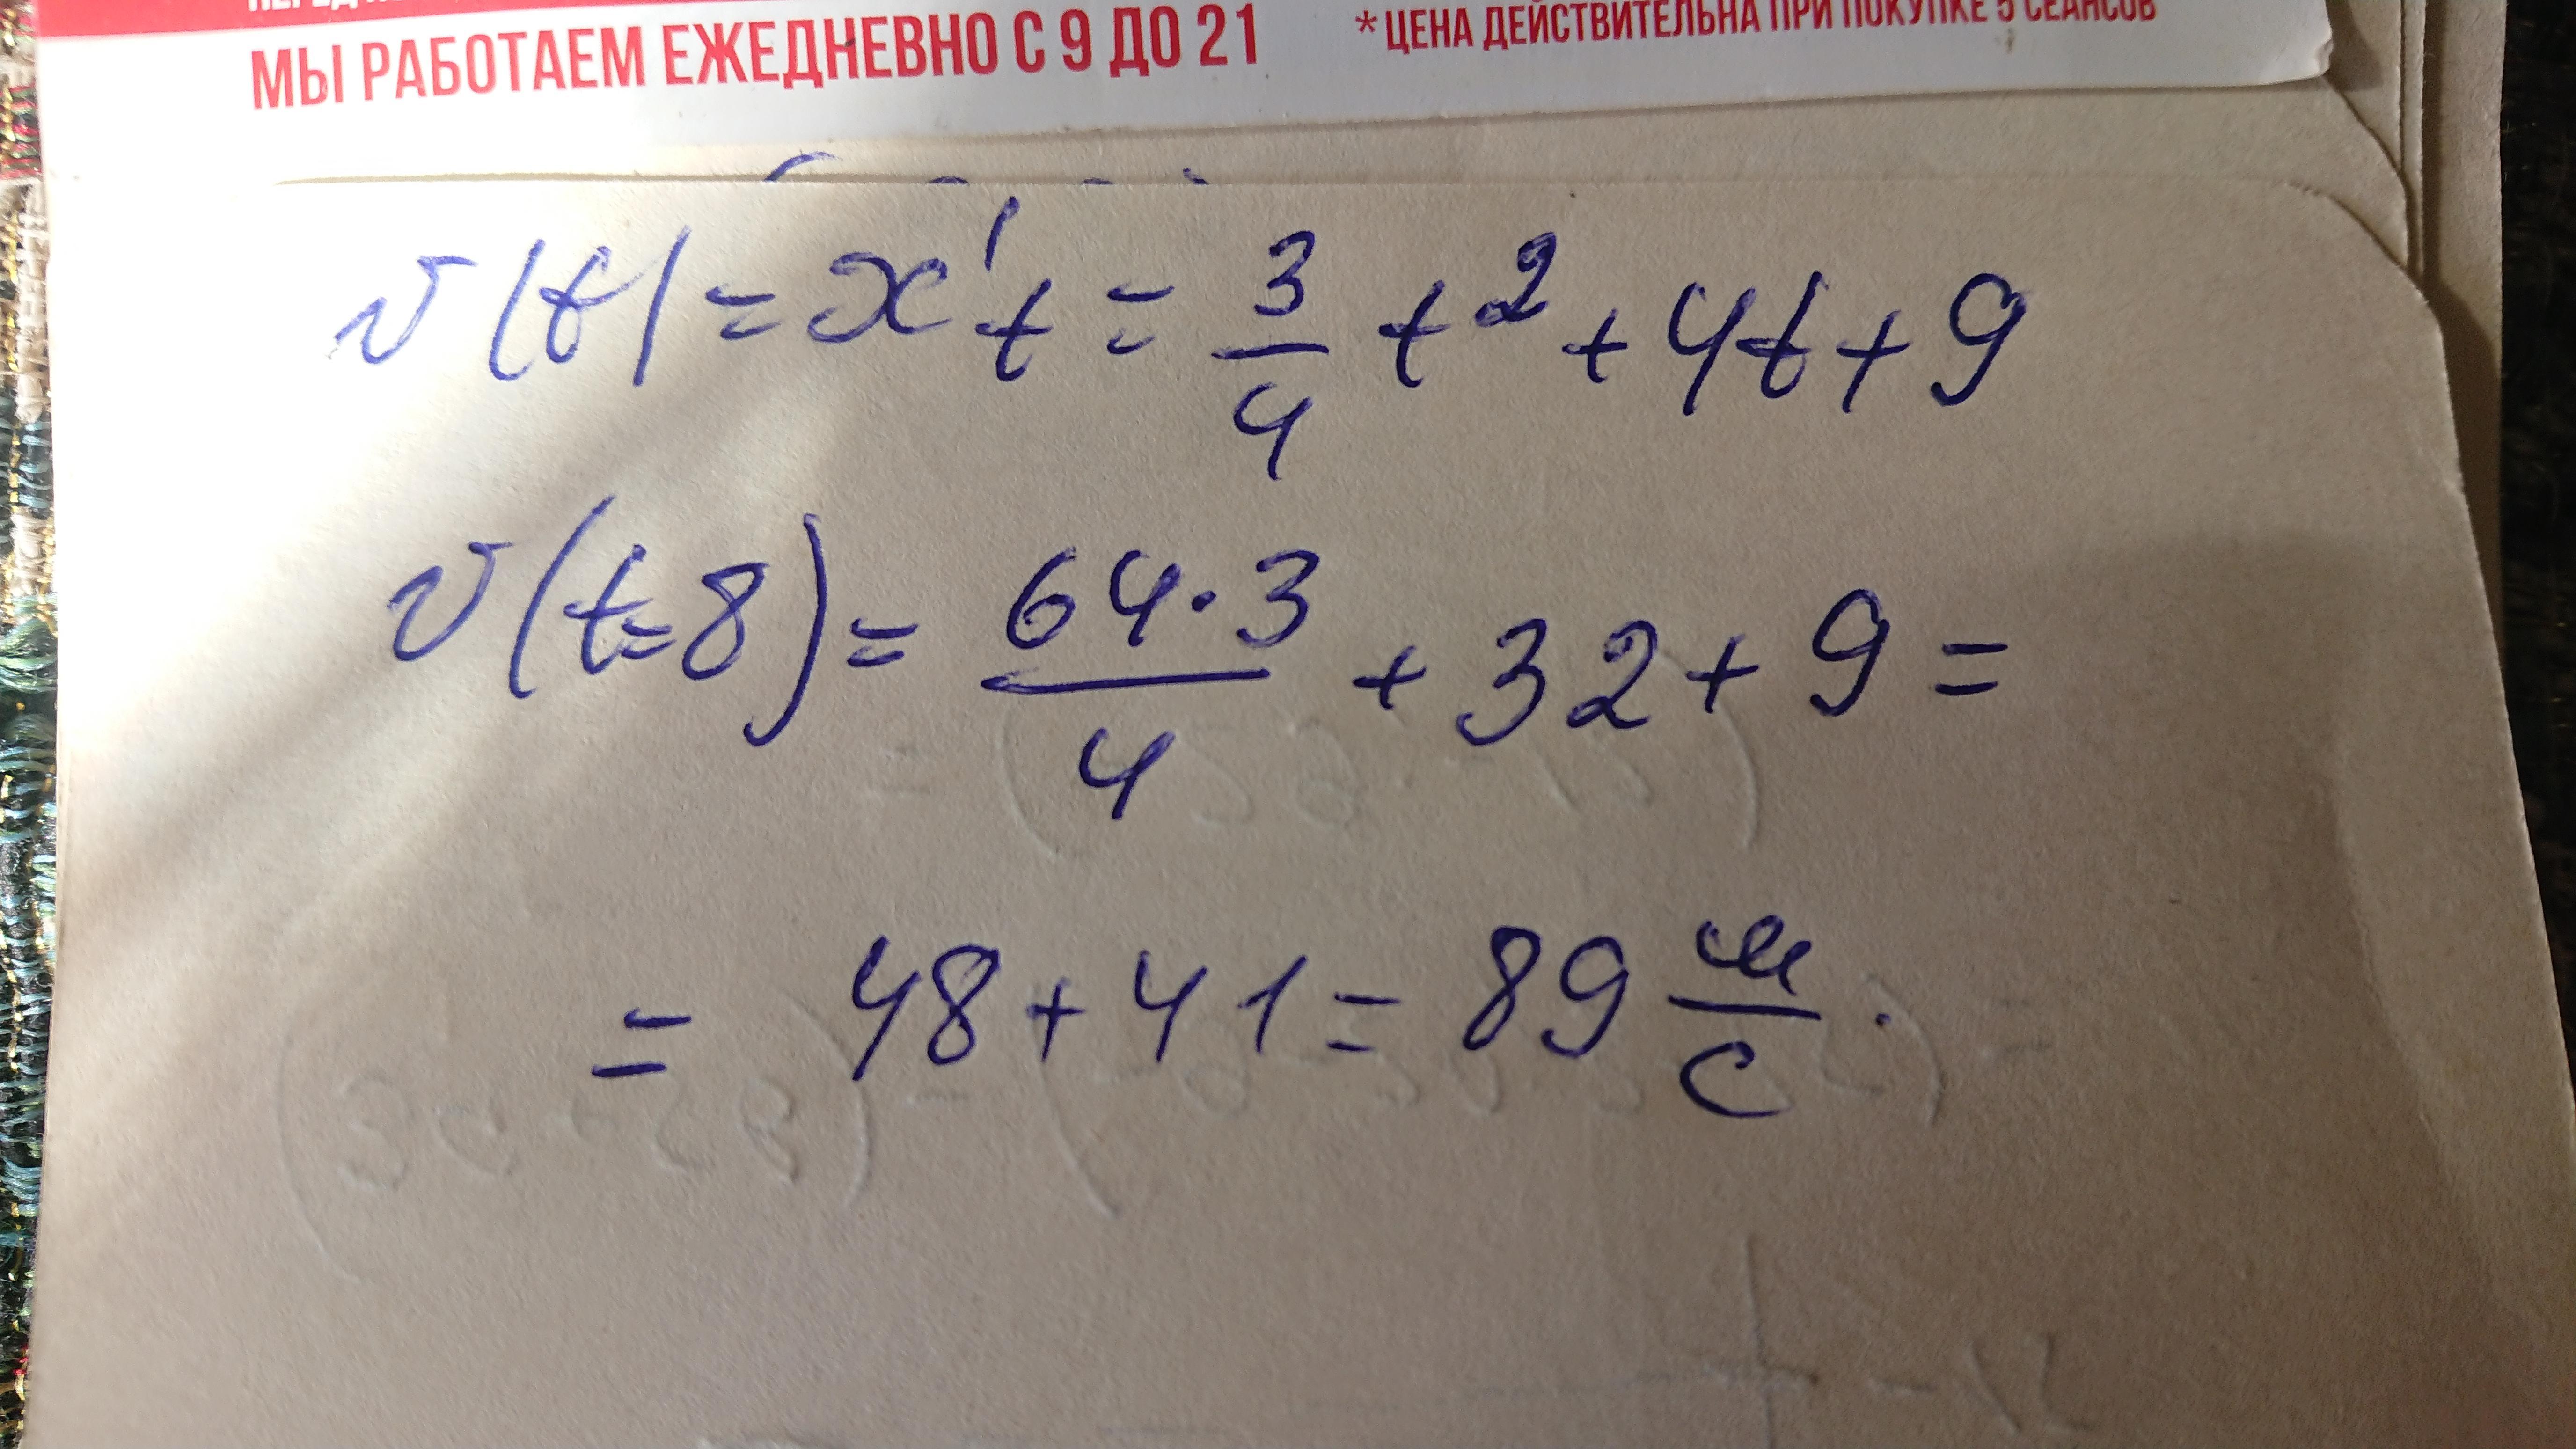 МЫ РАБОТАЕМ ЕЖЕДНЕВНО С 9 ДО 21
*ЦЕНА ДЕЙСТВИТЕЛЬНА ПРИ ПОКУПКЕ 5 СЕАНСОВ
v(t) = x't = 3/4 t² + 4t + 9
v(t=8) = 64·3/4 + 32 + 9 =
= 48 + 41 = 89 м/с.